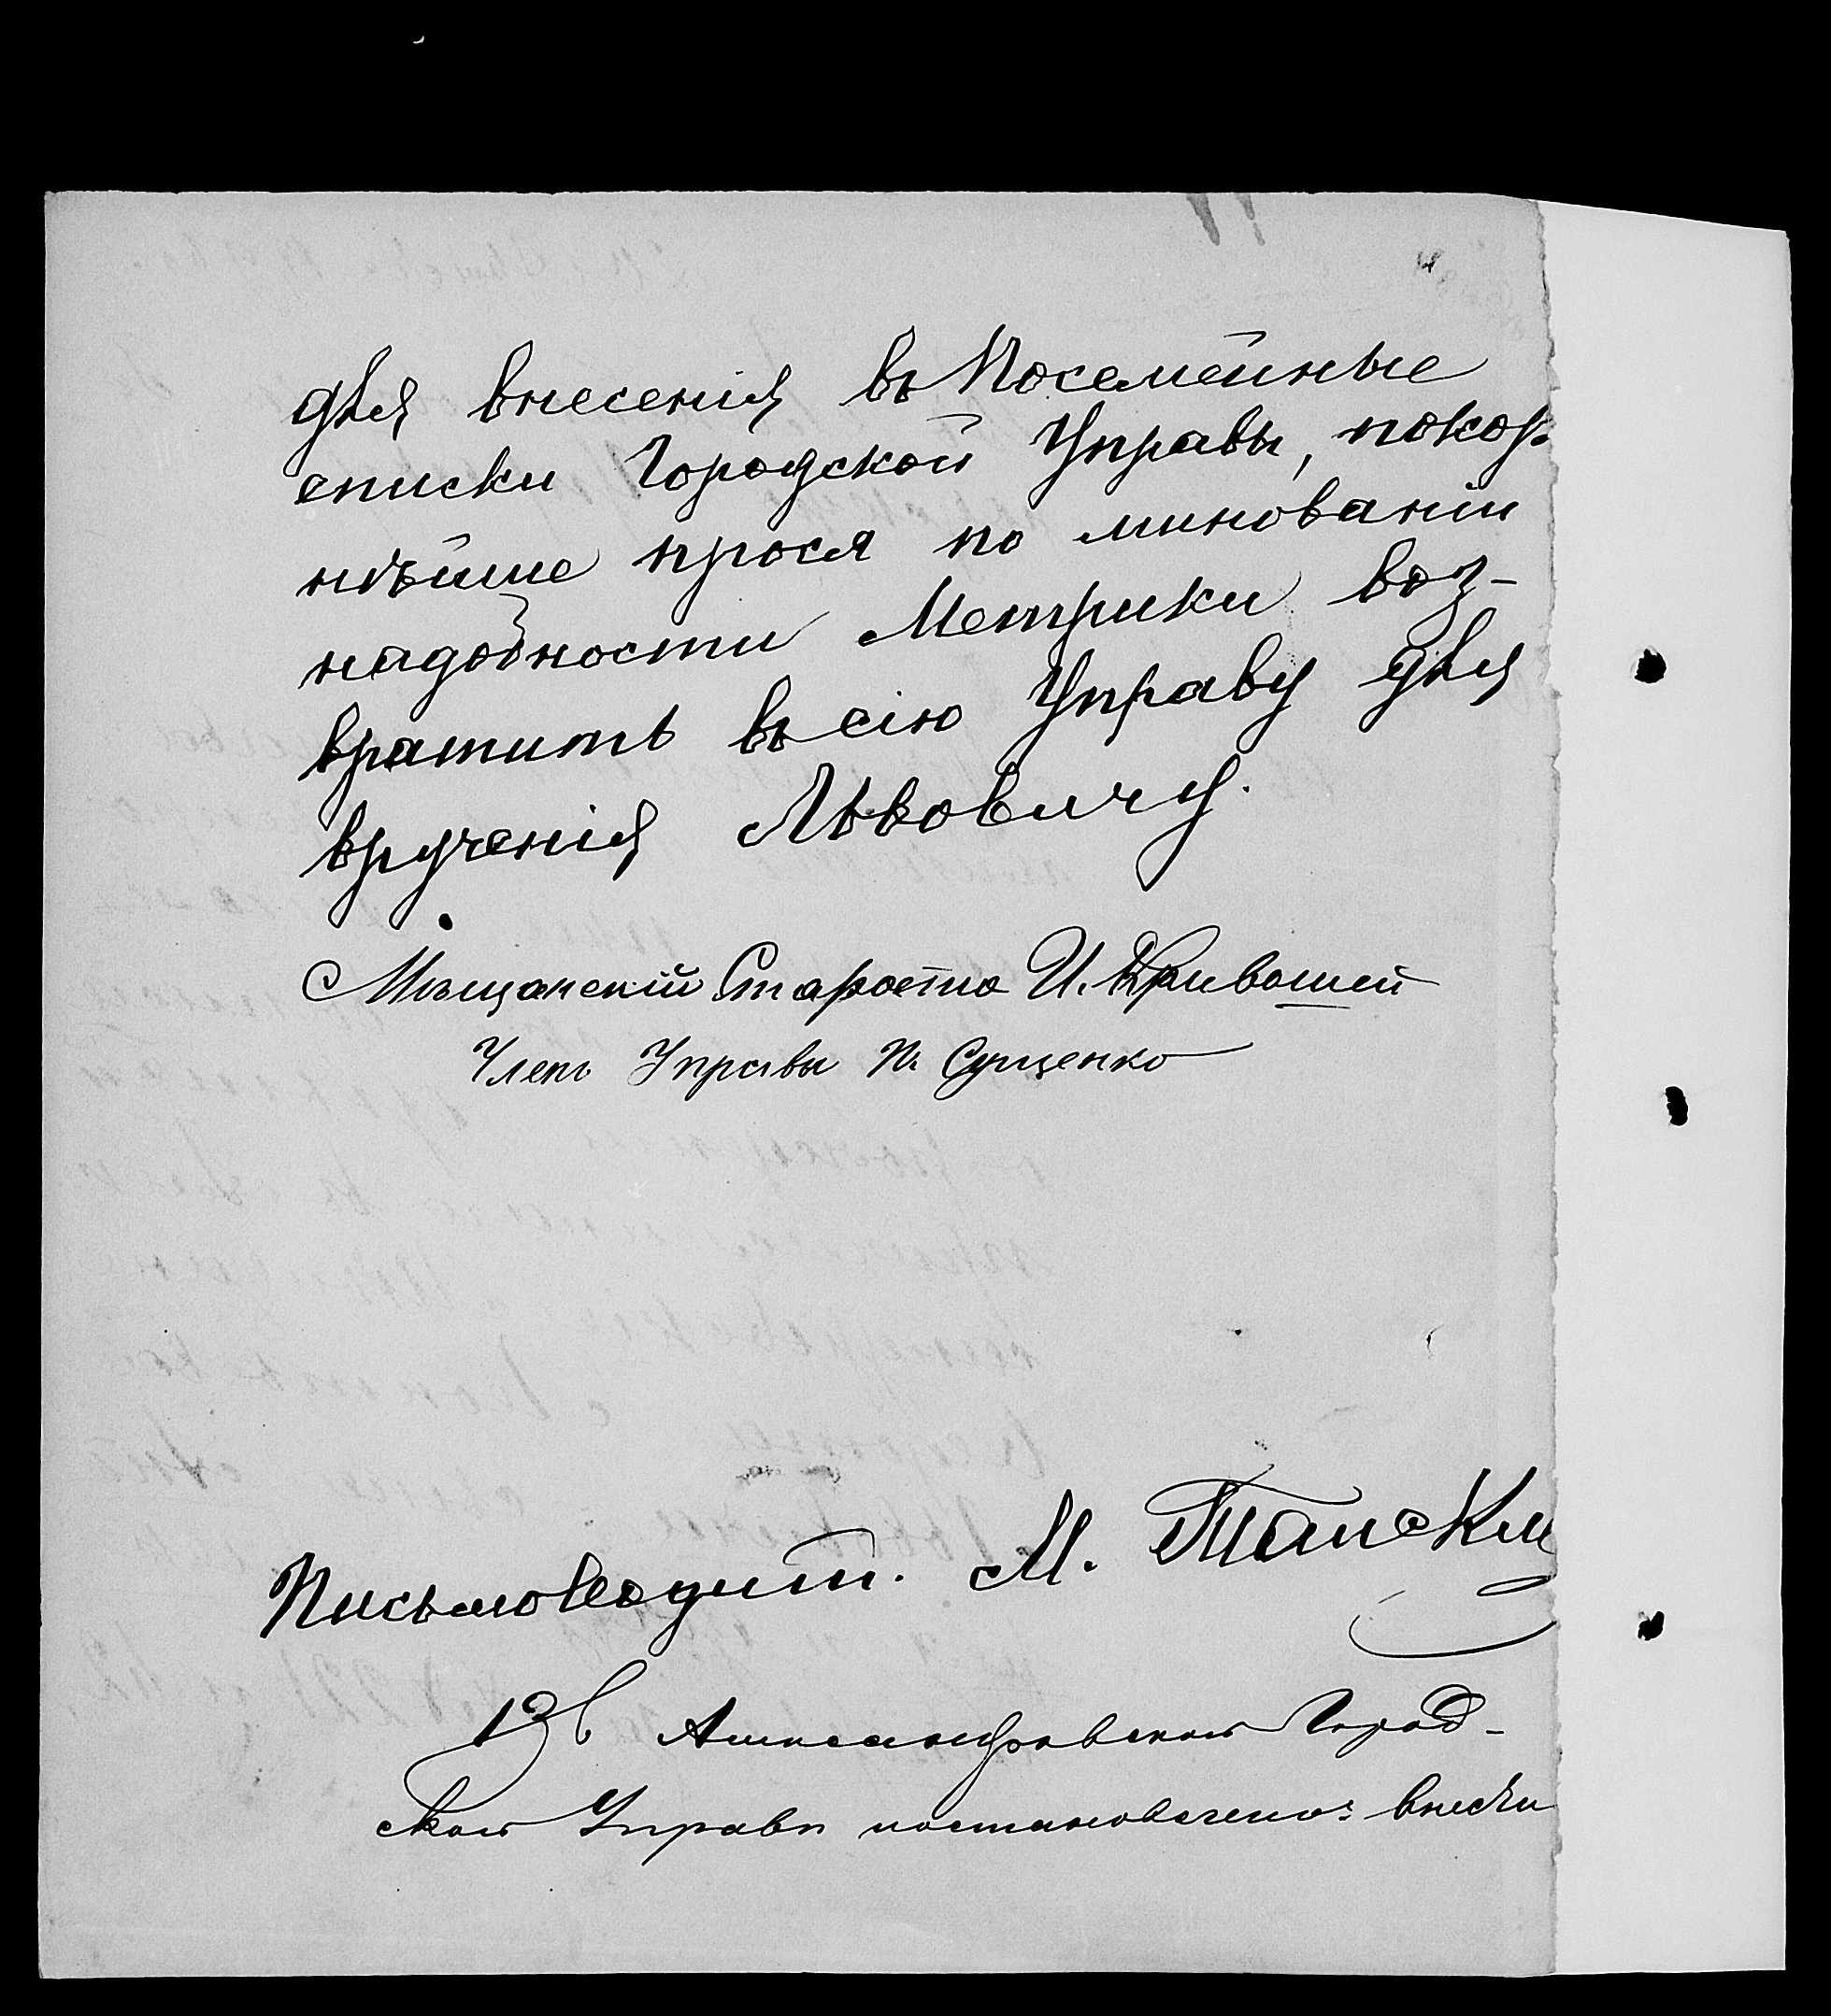 для внесенія въ Посемейные
списки Городской Управы, покор-
нѣйше прося по минованіи
надобности Метрики воз-
вратить въ сію Управу для
врученія Львовичу.
Мѣщанскій Староста И. Кривошей
Членъ Управы П. Сущенко
Письмоводит. М.
Въ Александровской Город-
ской Управѣ постановлено: внести